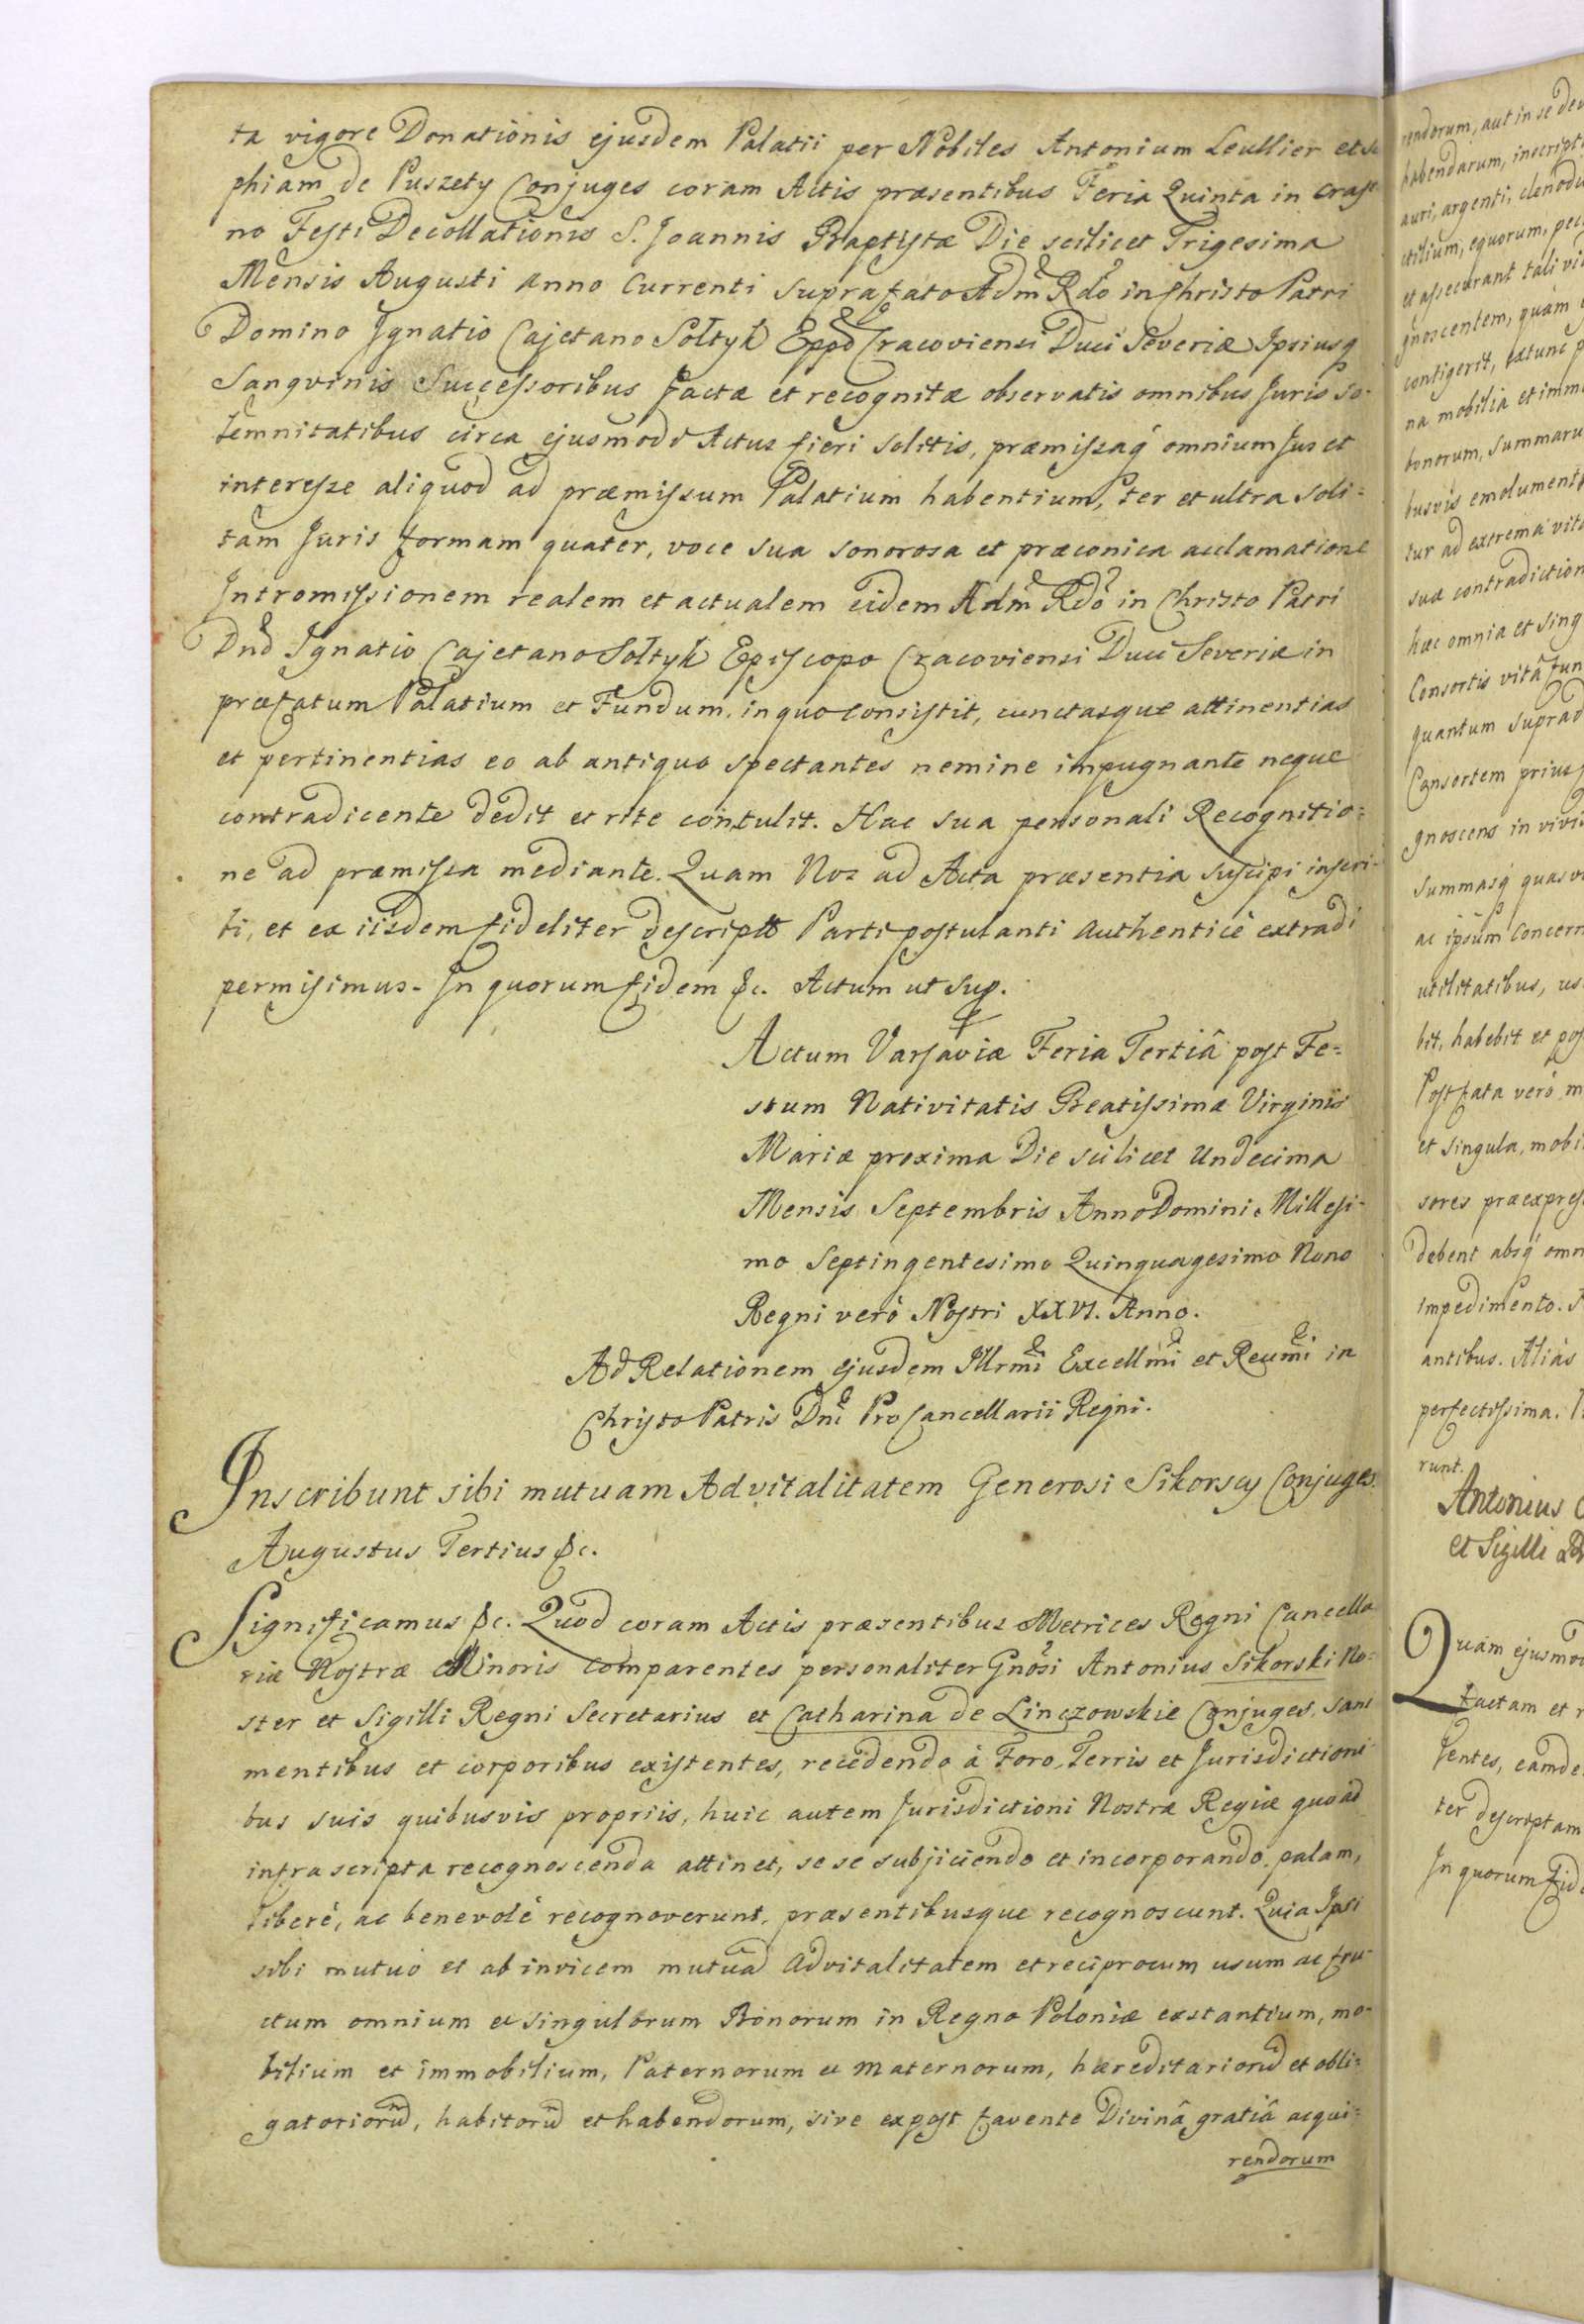 ta vigore Donationis ejusdem Palatii per Nobiles Antonium Leullier et So
phiam de Puszety Conjuges coram Actis præsentibus Feria Quinta in crasti
no Festi Decollationis S. Joannis Baptistæ Die scilicet Trigesima
Mensis Augusti Anno Currenti suprafato Adm Rdo in Christo Patri
Domino Ignatio Cajetano Sołtyk Eppo Cracoviensi Duci Severiæ Ipsiusq
Sangvinis Successoribus factæ et recognitæ observatis omnibus Juris so-
lemnitatibus circa ejusmodi Actus fieri solitis, præmissaq omnium Jus et
interesse aliquod ad præmissum Palatium habentium, ter et ultra soli=
tam Juris formam quater, voce sua sonorosa et præconica acclamatione
Intromissionem realem et actualem eidem Adm Rdo in Christo Patri
Dno Ignatio Cajetano Sołtyk Episcopo Cracoviensi Duci Severiæ in
præfatum Palatium et Fundum, in quo consistit, cunctasque attinentias
et pertinentias eo ab antiquo spectantes nemine impugnante neque
contradicente dedit et rite contulit. Hac sua personali Recognitio=
ne ad præmissa mediante. Quam Nos ad Acta præsentia suscipi inscri-
bi, et ex iisdem fideliter descriptt Parti postulanti authenticè extradi
permisimus. In quorum fidem &c. Actum ut sup.
Actum Varsaviæ Feria Tertiâ post Fe=
stum Nativitatis Beatissimæ Virginis
Mariæ proxima Die scilicet Undecima
Mensis Septembris Anno Domini Millesi-
mo Septingentesimo Quinquagesimo Nono
Regni verò Nostri XXVI. Anno.
Ad Relationem ejusdem Illrmi Excellmi et Reumi in
Christo Patris Dni ProCancellarii Regni.
Inscribunt sibi mutuam Advitalitatem Generosi Sikorscy Conjuges.
Augustus Tertius &c.
Significamus &c. Quod coram Actis præsentibus Metrices Regni Cancella
riæ Nostræ Minoris comparentes personaliter Gnosi Antonius Sikorski No-
ster et Sigilli Regni Secretarius et Catharina de Linczowskie Conjuges, sani
mentibus et corporibus existentes, recedendo à Foro, Terris et Jurisdictioni-
bus suis quibusvis propriis, huic autem Jurisdictioni Nostræ Regiæ quoad
infra scripta recognoscenda attinet, sese subjiciendo et incorporando, palam,
liberè, ac benevolè recognoverunt, præsentibusque recognoscunt. Quia Ipsi
sibi mutuò et ab invicem mutua Advitalitatem et reciprocum usum ac fru-
ctum omnium et singulorum Bonorum in Regno Poloniæ exstantium, mo-
bilium et immobilium, Paternorum et Maternorum, hæreditariorū et obli=
gatoriorū, habitorū et habendorum, sive expost favente Divinâ gratiâ acqui=
rendorum
rendorum, aut in se dev
habendarum, inscript
auri, argenti, clenodi
ctilium, equorum, pec
et assecurant tali vi
gnoscentem, quàm
contigerit, extunc p
na mobilia et immo
bonorum, summaru
busvis emolument
tur ad extrema vitæ
suæ contradiction
hæc omnia et sing
Consortis vitâ fun
quantum suprad
Consortem prius
gnoscens in vivis
summasq quasvi
ac ipsum concern
utilitatibus, us
bit, habebit et pos
Post fata verò m
et singula, mobi
sores præexpress
debent absq omn
impedimento. A
antibus. Aliàs
perfectissima. P
runt.
Antonius
et Sigilli
Quam ejusmod
factam et r
sentes, eamde
ter descriptam
In quorum fide